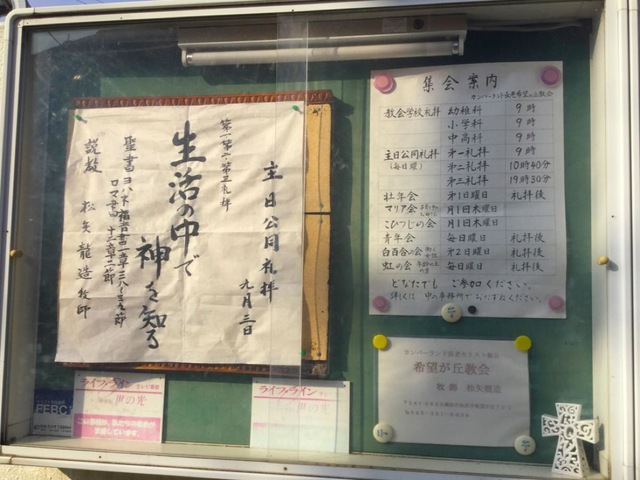 主日公同礼拝
九月三日
第一・第二・第三礼拝
生活の中で
神を知る
説教 松矢龍造牧師
集会案内
カンバーランド長老希望が丘教会
教会学校礼拝 幼稚科 9時
小学科 9時
中高科 9時
主日公同礼拝 第一礼拝 9時
(毎日曜) 第二礼拝 10時40分
第三礼拝 19時30分
壮年会 第1日曜日 礼拝後
マリア会 月1回木曜日
こひつじの会 月1回木曜日
青年会 毎日曜日 礼拝後
白百合の会 第2日曜日 礼拝後
虹の会 毎日曜日 礼拝後
どなたでも ご参加ください。
詳しくは 中の事務所で おたずねください。
カンバーランド長老キリスト教会
希望が丘教会
牧師 松矢龍造
FEBC
ライフ・ライン テレビ番組
世の光
ライフ・ライン
世の光